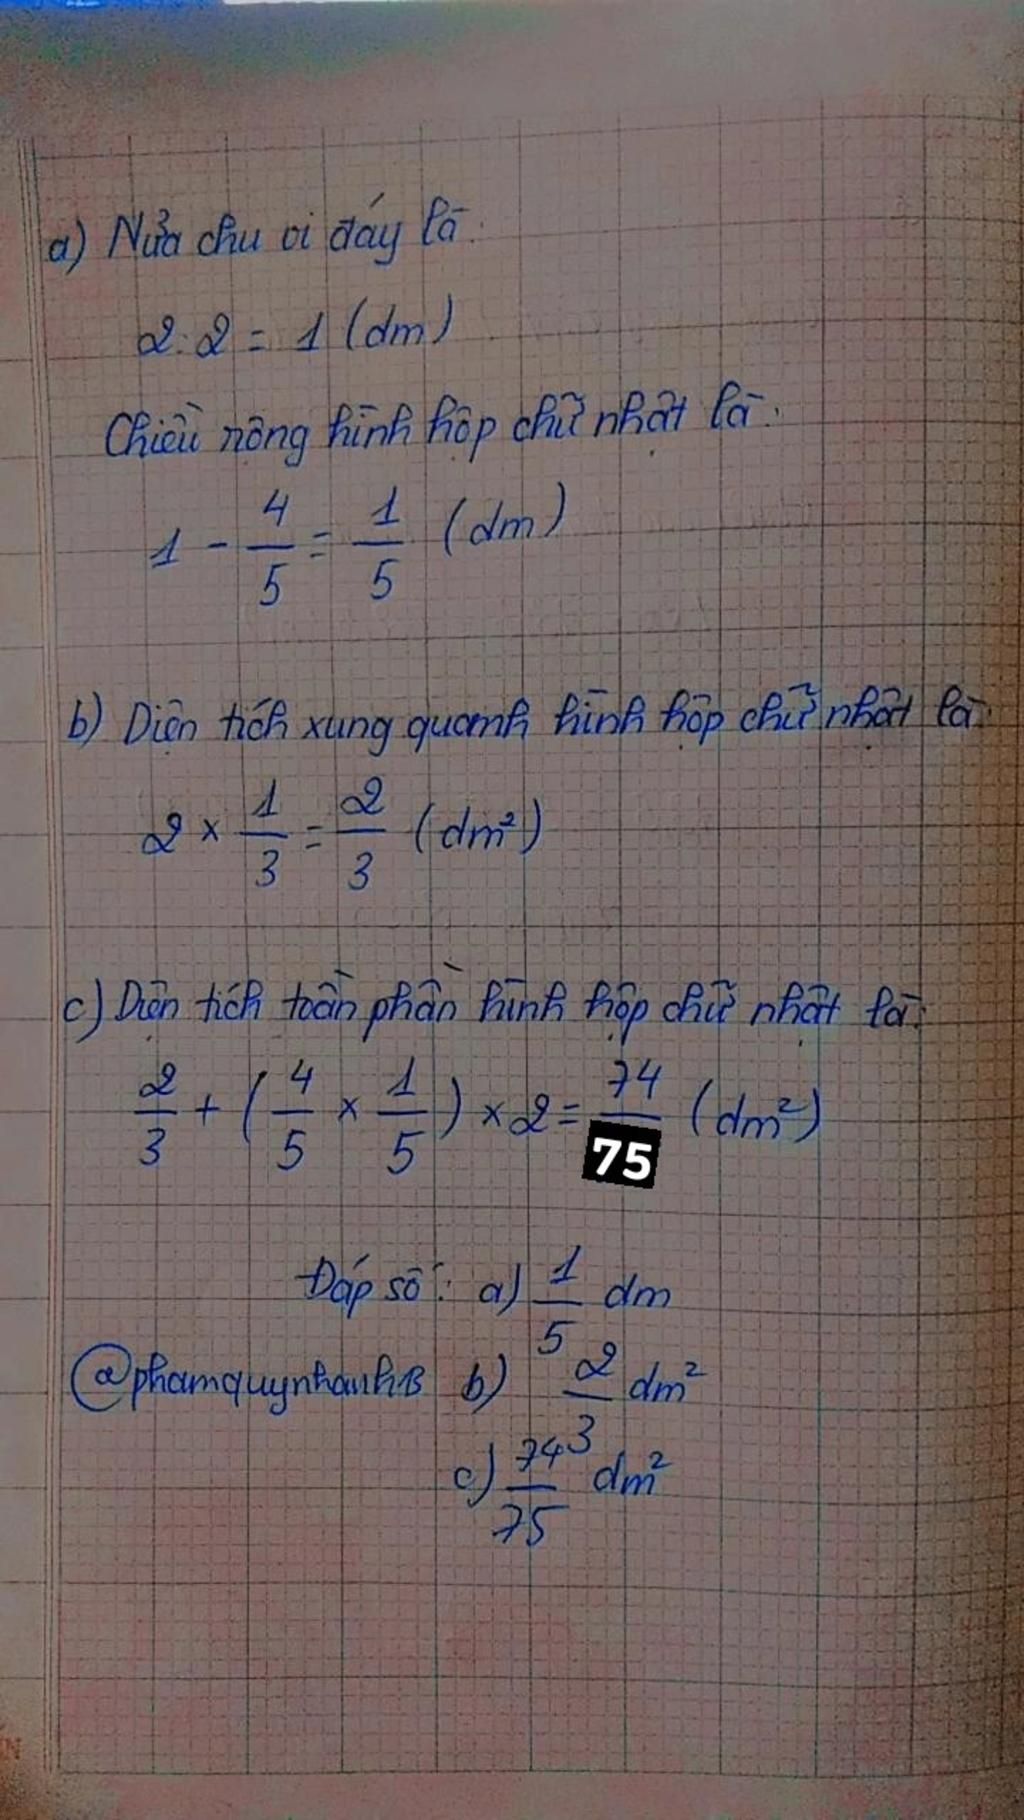 a) Nửa chu vi đáy là:
2:2 = 1 (dm)
Chiều rông hình hôp chữ nhật là:
1 - 4/5 = 1/5 (dm)
b) Diện tích xung quanh hình hôp chữ nhât là:
2 x 1/3 = 2/3 (dm²)
c) Diện tích toàn phần hình hộp chữ nhật là:
2/3 + (4/5 x 1/5) x 2 = 74/75 (dm²)
Đáp số: a) 1/5 dm
@phamquynhanh13 b) 2/3 dm²
c) 74/75 dm²